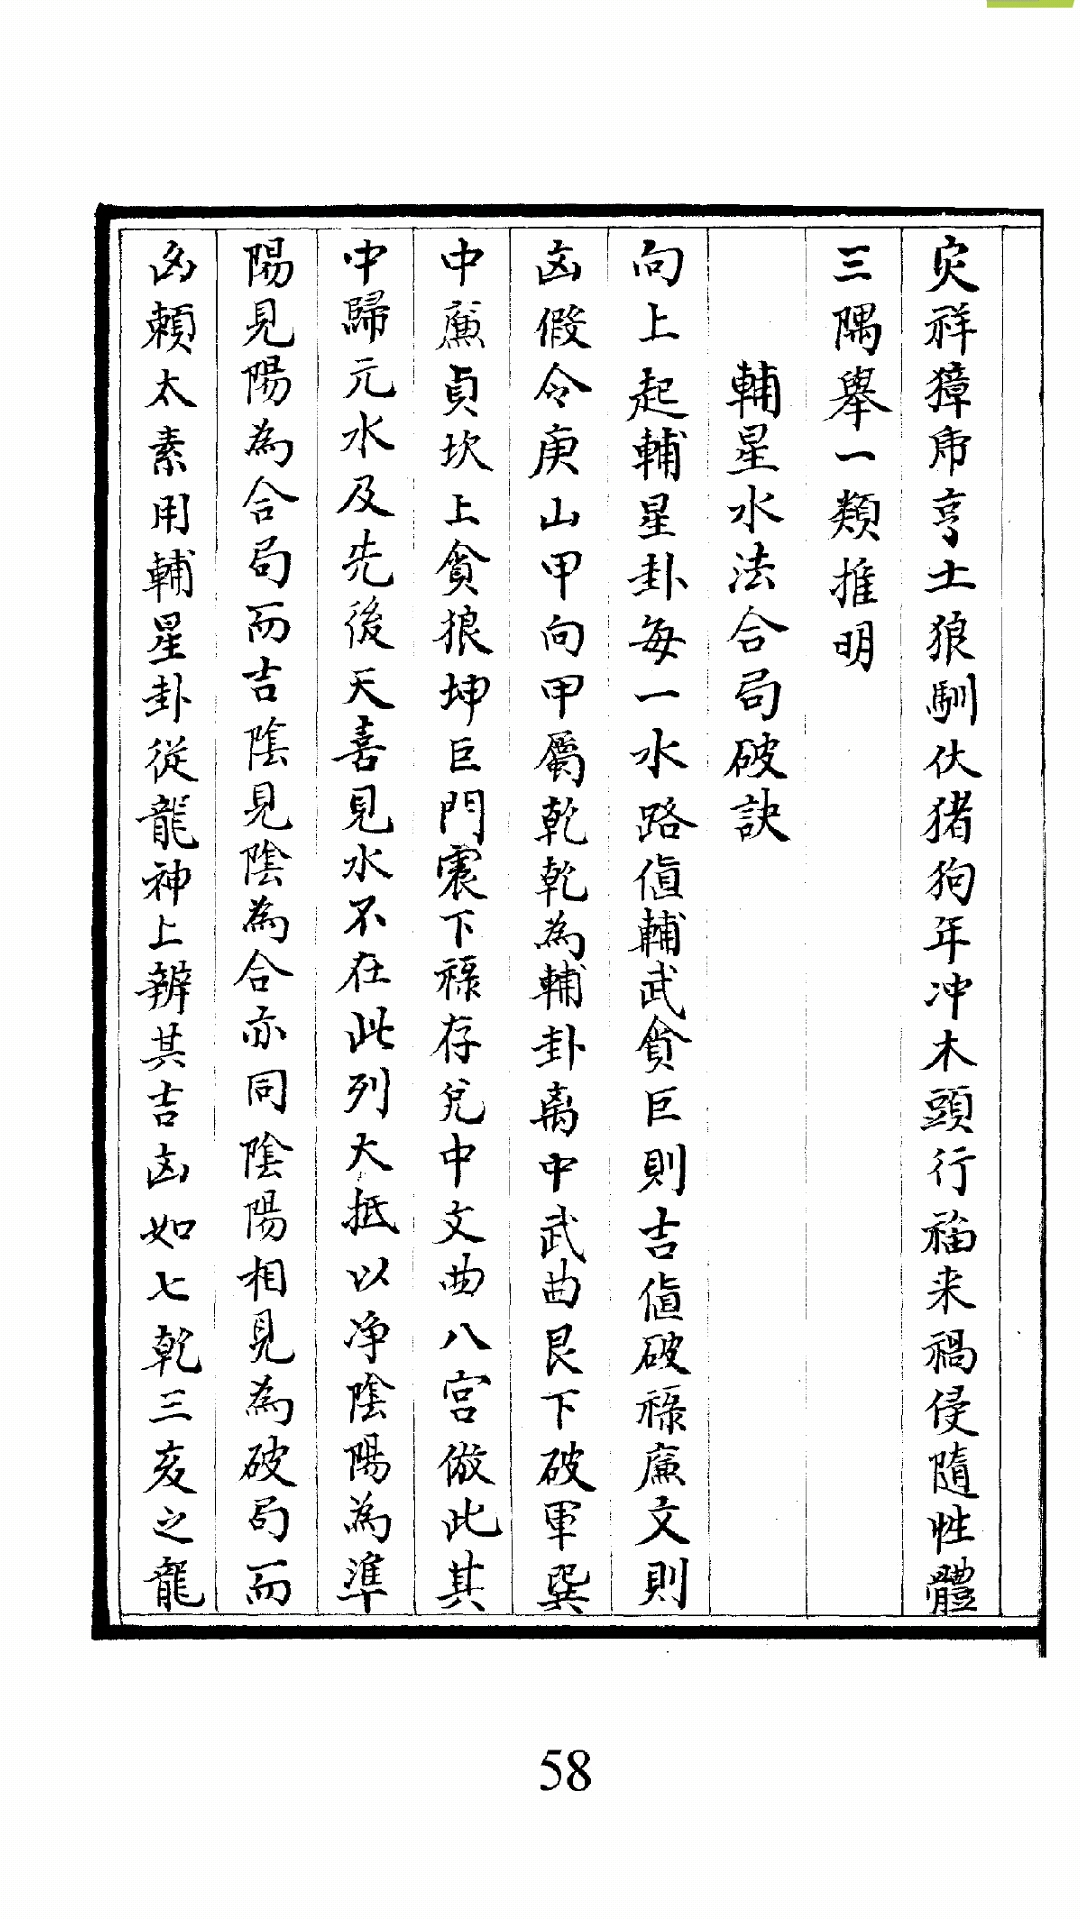 灾祥獐帍亨土狼馴伏猪狗年冲木頭行福来禍侵隨性體
三隅舉一類推明
輔星水法合局破訣
向上起輔星卦每一水路值輔武貪巨則吉值破祿廉文則
凶假令庚山甲向甲屬乾乾為輔卦离中武曲艮下破軍巽
中廉貞坎上貪狼坤巨門震下祿存兌中文曲八宮倣此其
中歸元水及先後天喜見水不在此列大抵以净陰陽為準
陽見陽為合局而吉陰見陰為合亦同陰陽相見為破局而
凶賴太素用輔星卦從龍神上辨其吉凶如七乾三亥之龍
58